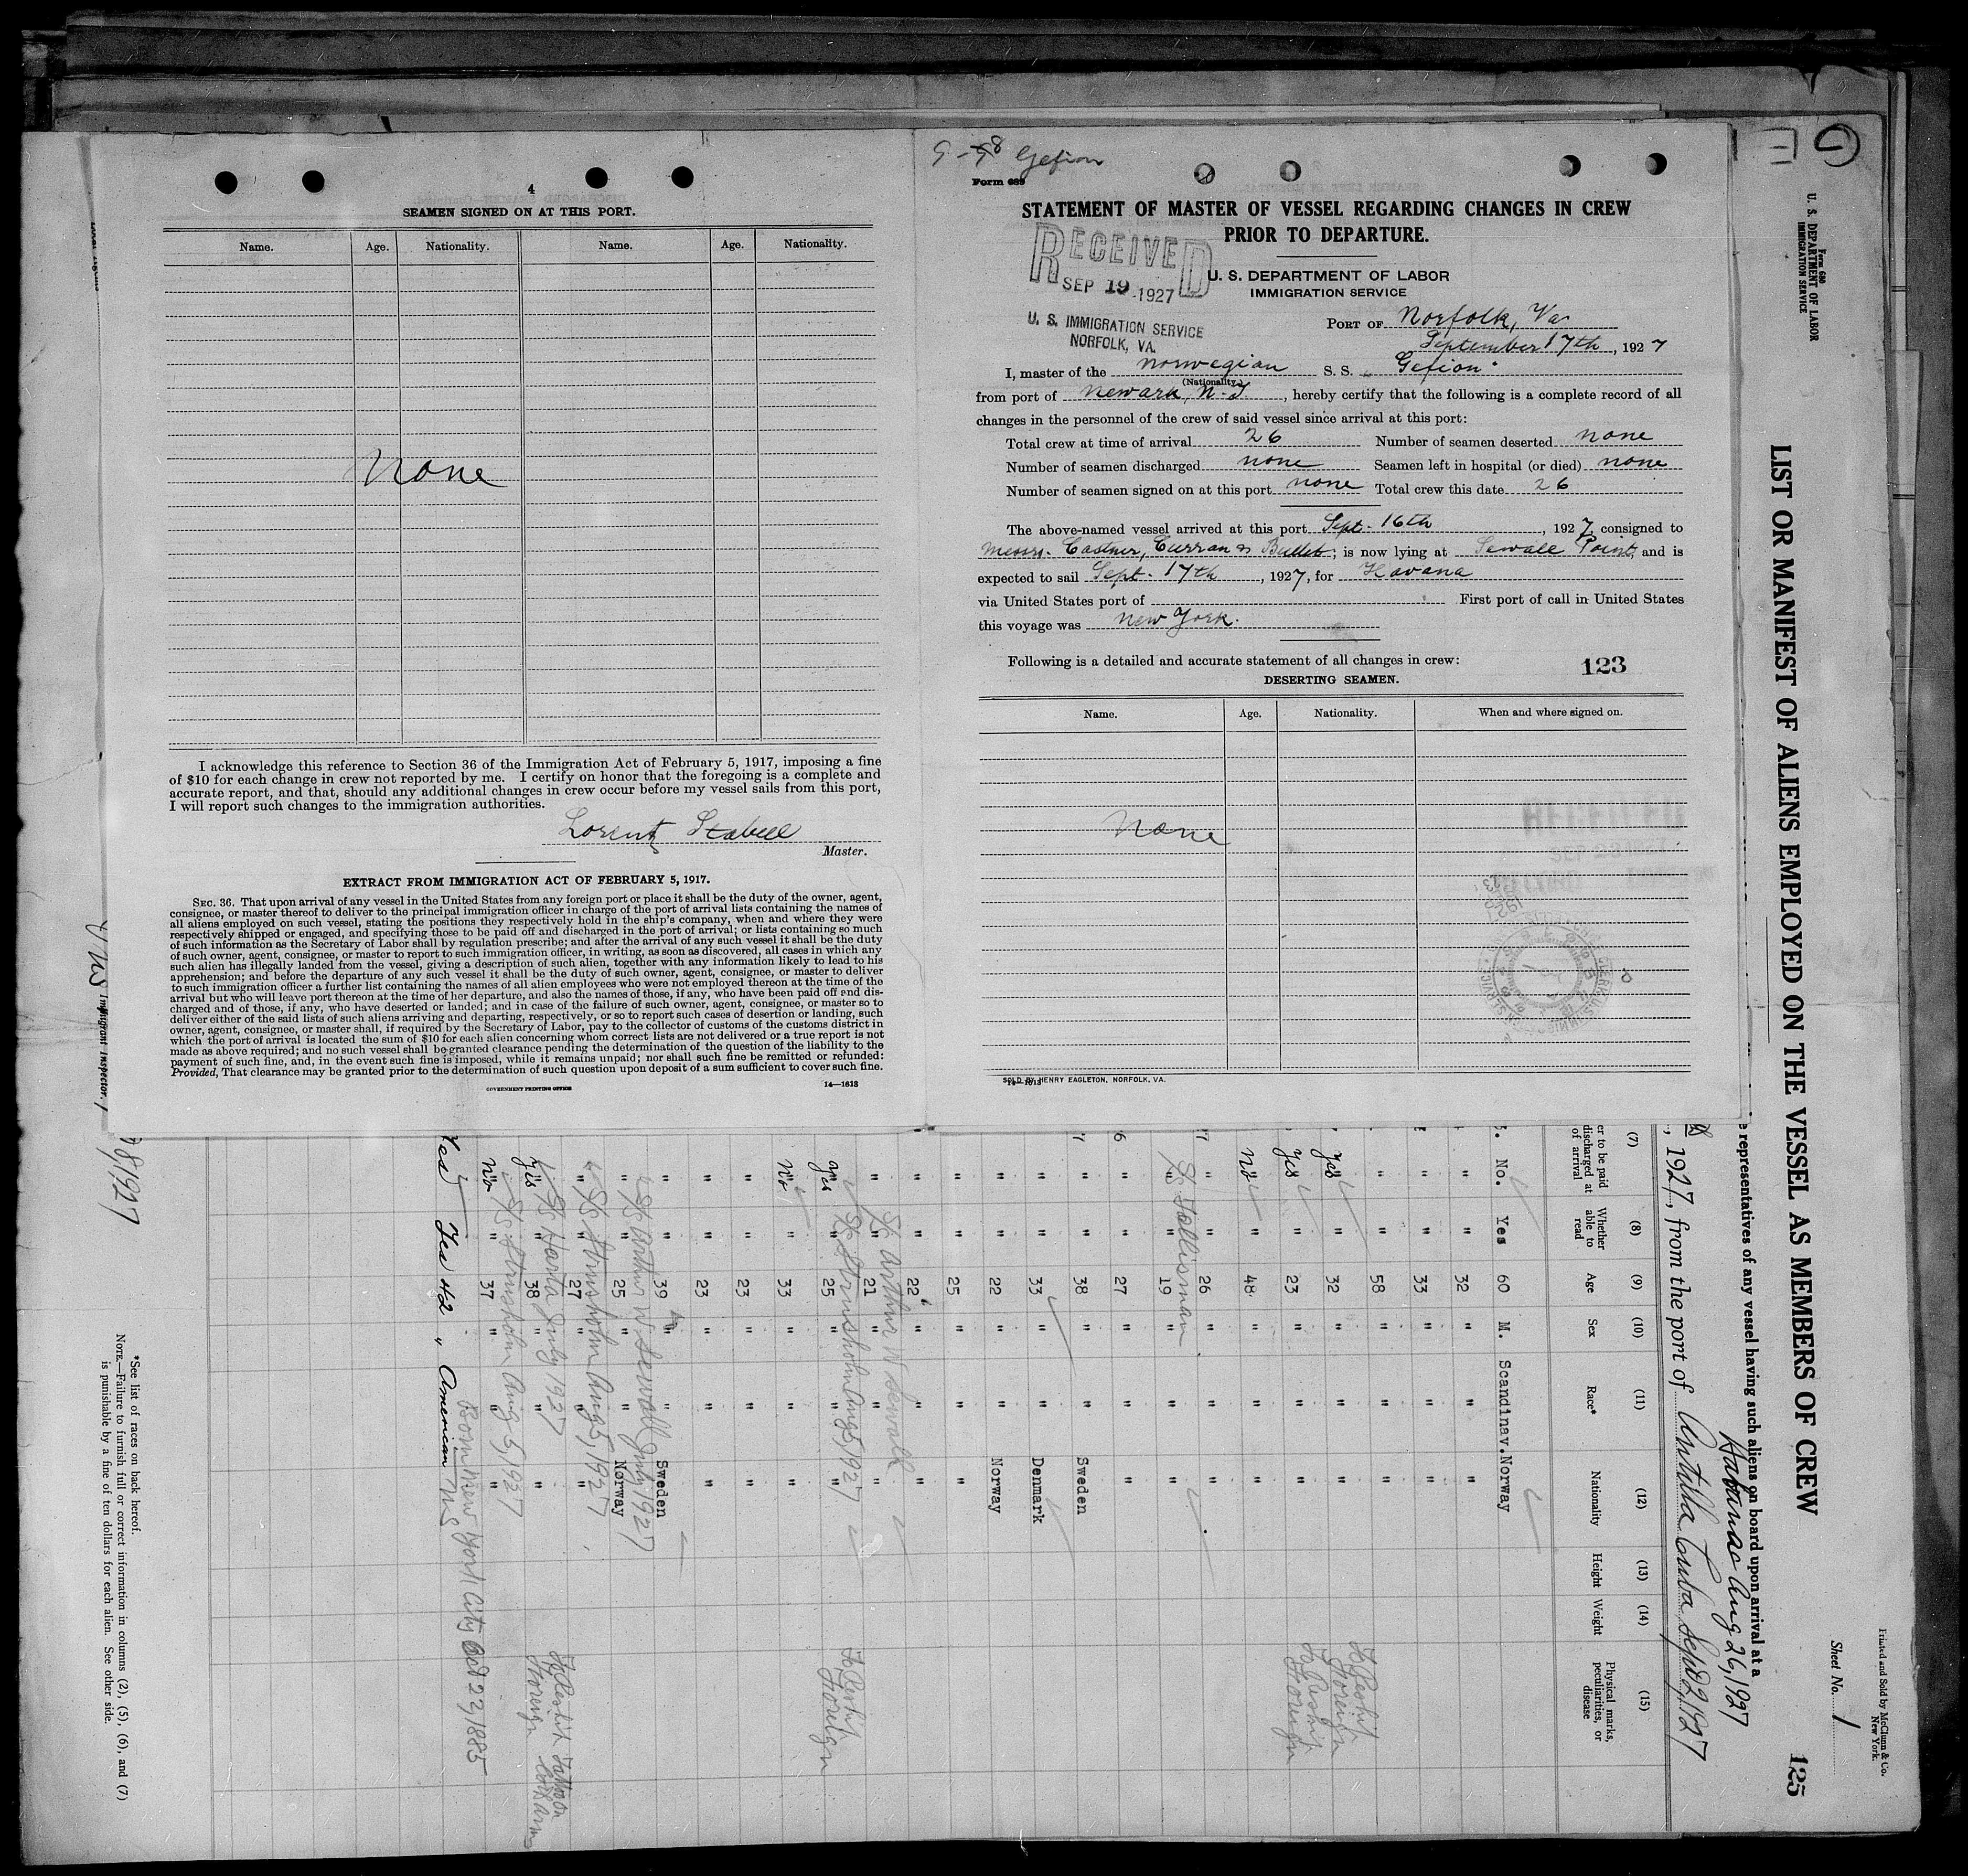 4
SEAMEN SIGNED ON AT THIS PORT.
Name. Age. Nationality. Name. Age. Nationality.
None
I acknowledge this reference to Section 36 of the Immigration Act of February 5, 1917, imposing a fine
of $10 for each change in crew not reported by me. I certify on honor that the foregoing is a complete and
accurate report, and that, should any additional changes in crew occur before my vessel sails from this port,
I will report such changes to the immigration authorities.
Lorentz Stabell
Master.
EXTRACT FROM IMMIGRATION ACT OF FEBRUARY 5, 1917.
SEC. 36. That upon arrival of any vessel in the United States from any foreign port or place it shall be the duty of the owner, agent,
consignee, or master thereof to deliver to the principal immigration officer in charge of the port of arrival lists containing the names of
all aliens employed on such vessel, stating the positions they respectively hold in the ship's company, when and where they were
respectively shipped or engaged, and specifying those to be paid off and discharged in the port of arrival; or lists containing so much
of such information as the Secretary of Labor shall by regulation prescribe; and after the arrival of any such vessel it shall be the duty
of such owner, agent, consignee, or master to report to such immigration officer, in writing, as soon as discovered, all cases in which any
such alien has illegally landed from the vessel, giving a description of such alien, together with any information likely to lead to his
apprehension; and before the departure of any such vessel it shall be the duty of such owner, agent, consignee, or master to deliver
to such immigration officer a further list containing the names of all alien employees who were not employed thereon at the time of the
arrival but who will leave port thereon at the time of her departure, and also the names of those, if any, who have been paid off and dis-
charged and of those, if any, who have deserted or landed; and in case of the failure of such owner, agent, consignee, or master so to
deliver either of the said lists of such aliens arriving and departing, respectively, or so to report such cases of desertion or landing, such
owner, agent, consignee, or master shall, if required by the Secretary of Labor, pay to the collector of customs of the customs district in
which the port of arrival is located the sum of $10 for each alien concerning whom correct lists are not delivered or a true report is not
made as above required; and no such vessel shall be granted clearance pending the determination of the question of the liability to the
payment of such fine, and, in the event such fine is imposed, while it remains unpaid; nor shall such fine be remitted or refunded:
Provided, That clearance may be granted prior to the determination of such question upon deposit of a sum sufficient to cover such fine.
GOVERNMENT PRINTING OFFICE 14—1613
Gefion
Form 689
STATEMENT OF MASTER OF VESSEL REGARDING CHANGES IN CREW
PRIOR TO DEPARTURE.
RECEIVED
SEP 19 1927
U. S. IMMIGRATION SERVICE
NORFOLK, VA.
U. S. DEPARTMENT OF LABOR
IMMIGRATION SERVICE
PORT OF Norfolk, Va
September 17th, 1927
I, master of the norwegian S. S. Gefion
(Nationality.)
from port of Newark, N.J., hereby certify that the following is a complete record of all
changes in the personnel of the crew of said vessel since arrival at this port:
Total crew at time of arrival 26 Number of seamen deserted none
Number of seamen discharged none Seamen left in hospital (or died) none
Number of seamen signed on at this port none Total crew this date 26
The above-named vessel arrived at this port Sept. 16th, 1927, consigned to
Messrs. Castner, Curran & Bullet; is now lying at Sewall Point, and is
expected to sail Sept. 17th, 1927, for Havana
via United States port of First port of call in United States
this voyage was New York.
Following is a detailed and accurate statement of all changes in crew:
123
DESERTING SEAMEN.
Name. Age. Nationality. When and where signed on.
None
SOLD BY HENRY EAGLETON, NORFOLK, VA.
Form 680
U. S. DEPARTMENT OF LABOR
IMMIGRATION SERVICE
Printed and Sold by McClunn & Co.
New York.
Sheet No. 1
125
LIST OR MANIFEST OF ALIENS EMPLOYED ON THE VESSEL AS MEMBERS OF CREW
representatives of any vessel having such aliens on board upon arrival at a
Havana Aug 26, 1927
, 1927, from the port of Antilla Cuba Sept 2, 1927
(7) (8) (9) (10) (11) (12) (13) (14) (15)
er to be paid
discharged at
of arrival
Whether
able to
read
Age Sex Race* Nationality Height Weight
Physical marks,
peculiarities, or
disease
No. Yes 60 M. Scandinav. Norway
" " 32 " " "
" " 33 " " "
" " 58 " " "
Yes " 32 " " "
Yes " 23 " " "
No " 48 " " "
" " 26 " " "
" " 19 " " "
" " 27 " " "
" " 38 " " Sweden
" " 33 " " Denmark
" " 22 " " Norway
" " 25 " " "
" " 22 " " "
S/S Arthur W Sewall
" " 21 " " "
S/S Strinsholm Aug 5, 1927
Yes " 25 " " "
Foreign
No " 33 " " "
" " 23 " " "
" " 23 " " "
" " 39 " " Sweden
S/S Arthur W Sewall July 1927
" " 25 " " Norway
S/S Strinsholm Aug 5, 1927
" " 27 " " "
S/S Harta July 1927
Yes " 38 " " "
Foreign
S/S Strinsholm Aug 5, 1927
No " 37 " " "
Born New York City Oct 23, 1885
Yes Yes 42 " American US
*See list of races on back hereof.
NOTE.—Failure to furnish full or correct information in columns (2), (5), (6), and (7)
is punishable by a fine of ten dollars for each alien. See other side.
Immigrant Inspector.